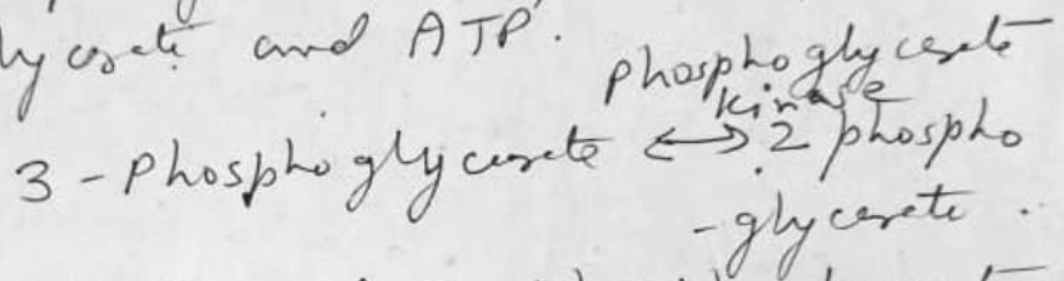 lycerate and ATP.
phosphoglycerate
kinase
3 - Phosphoglycerate ⟷ 2 phospho
- glycerate .